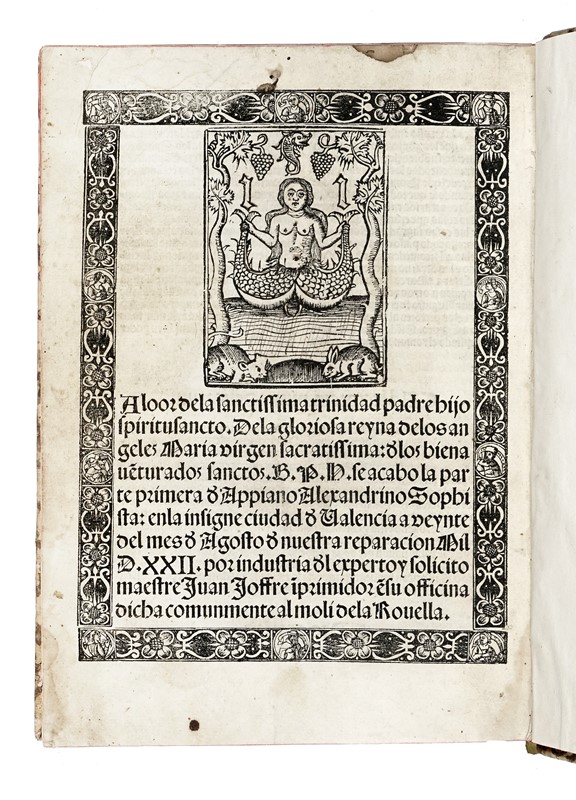 I I
A loor dela sanctissima trinidad padre hijo
spiritusancto. De la gloriosa reyna delos an
geles Maria virgen sacratissima: đlos biena
uẽturados sanctos. B. P. N. se acabo la par
te primera đ Appiano Alexandrino Sophi
sta: enla insigne ciudad đ Ualencia a veynte
del mes đ Agosto đ nuestra reparacion Mil
D.XXII. por industria đl experto y solicito
maestre Juan Joffre ĩprimidor ẽsu officina
dicha comunmente al moli dela Rouella.